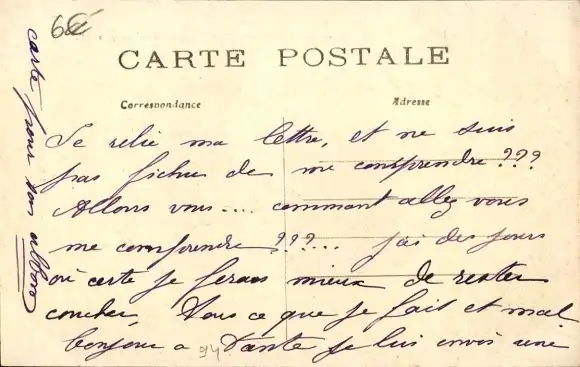 6€
CARTE POSTALE
Correspondance
Adresse
Je relie ma lettre, et ne suis
pas fichue de me comprendre ???
Allons vous .... comment allez vous
me comprendre ???... j'ai des jours
où certe je ferais mieux de rester
coucher, Tous ce que je fait et mal.
bonjour a tante je lui envois une
94
carte pour son album